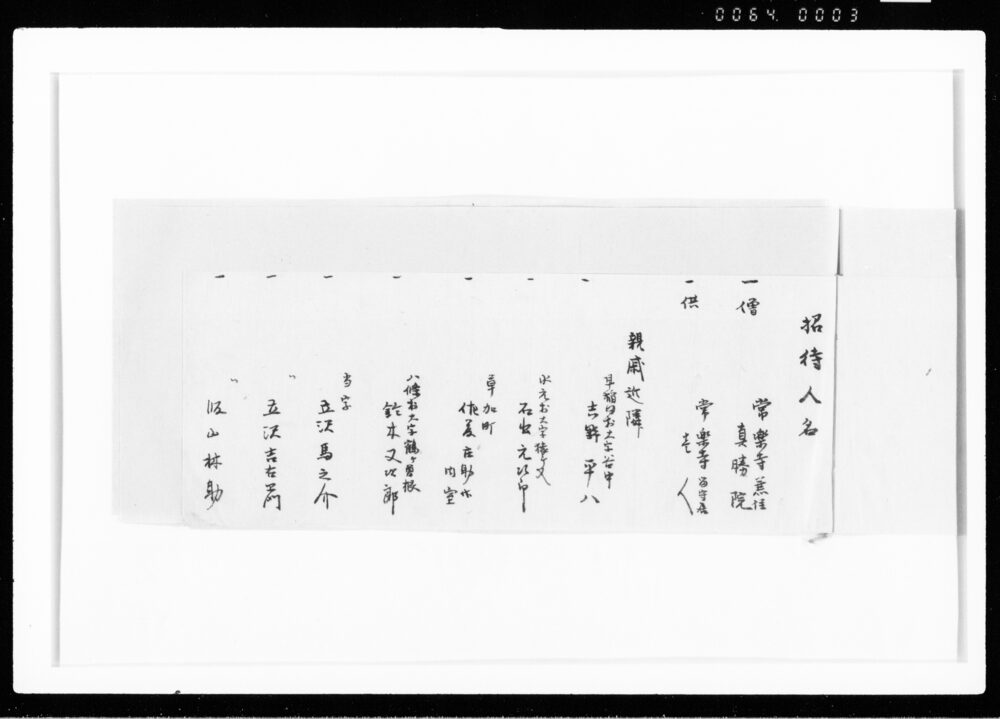 0064 0003
招待人名
一 僧
常楽寺兼住
真勝院
一 供
常楽寺留守居
壱人
親戚近隣
一
早稲田村大字谷中
吉野平八
一
水元村大字猿又
石出元次郎
一
草加町
佐庄助
内室
一
八條村大字鶴ヶ曽根
鈴木又次郎
一
当字
五沢馬之介
一
〃
五沢吉右衛門
一
〃
山林助